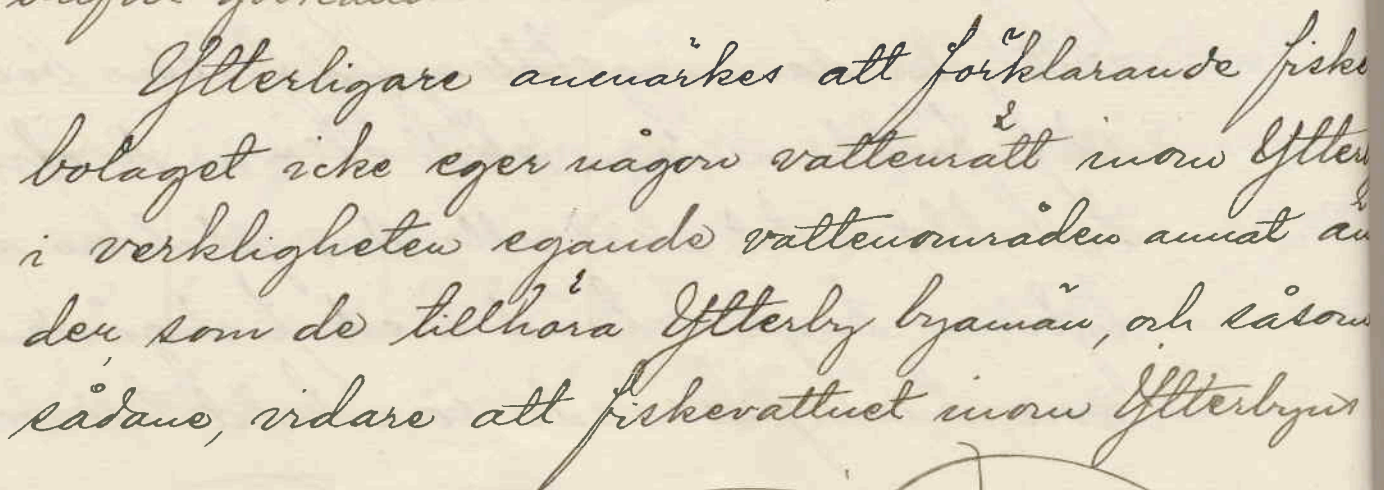 Ytterligare anmärkes att förklarande fiske
bolaget icke eger någon vattenrätt inom Ytterby
i verkligheten egande vattenområden annat än
der som de tillhöra Ytterby byamän, och såsom
sådane, vidare att fiskevattnet inom Ytterbyns